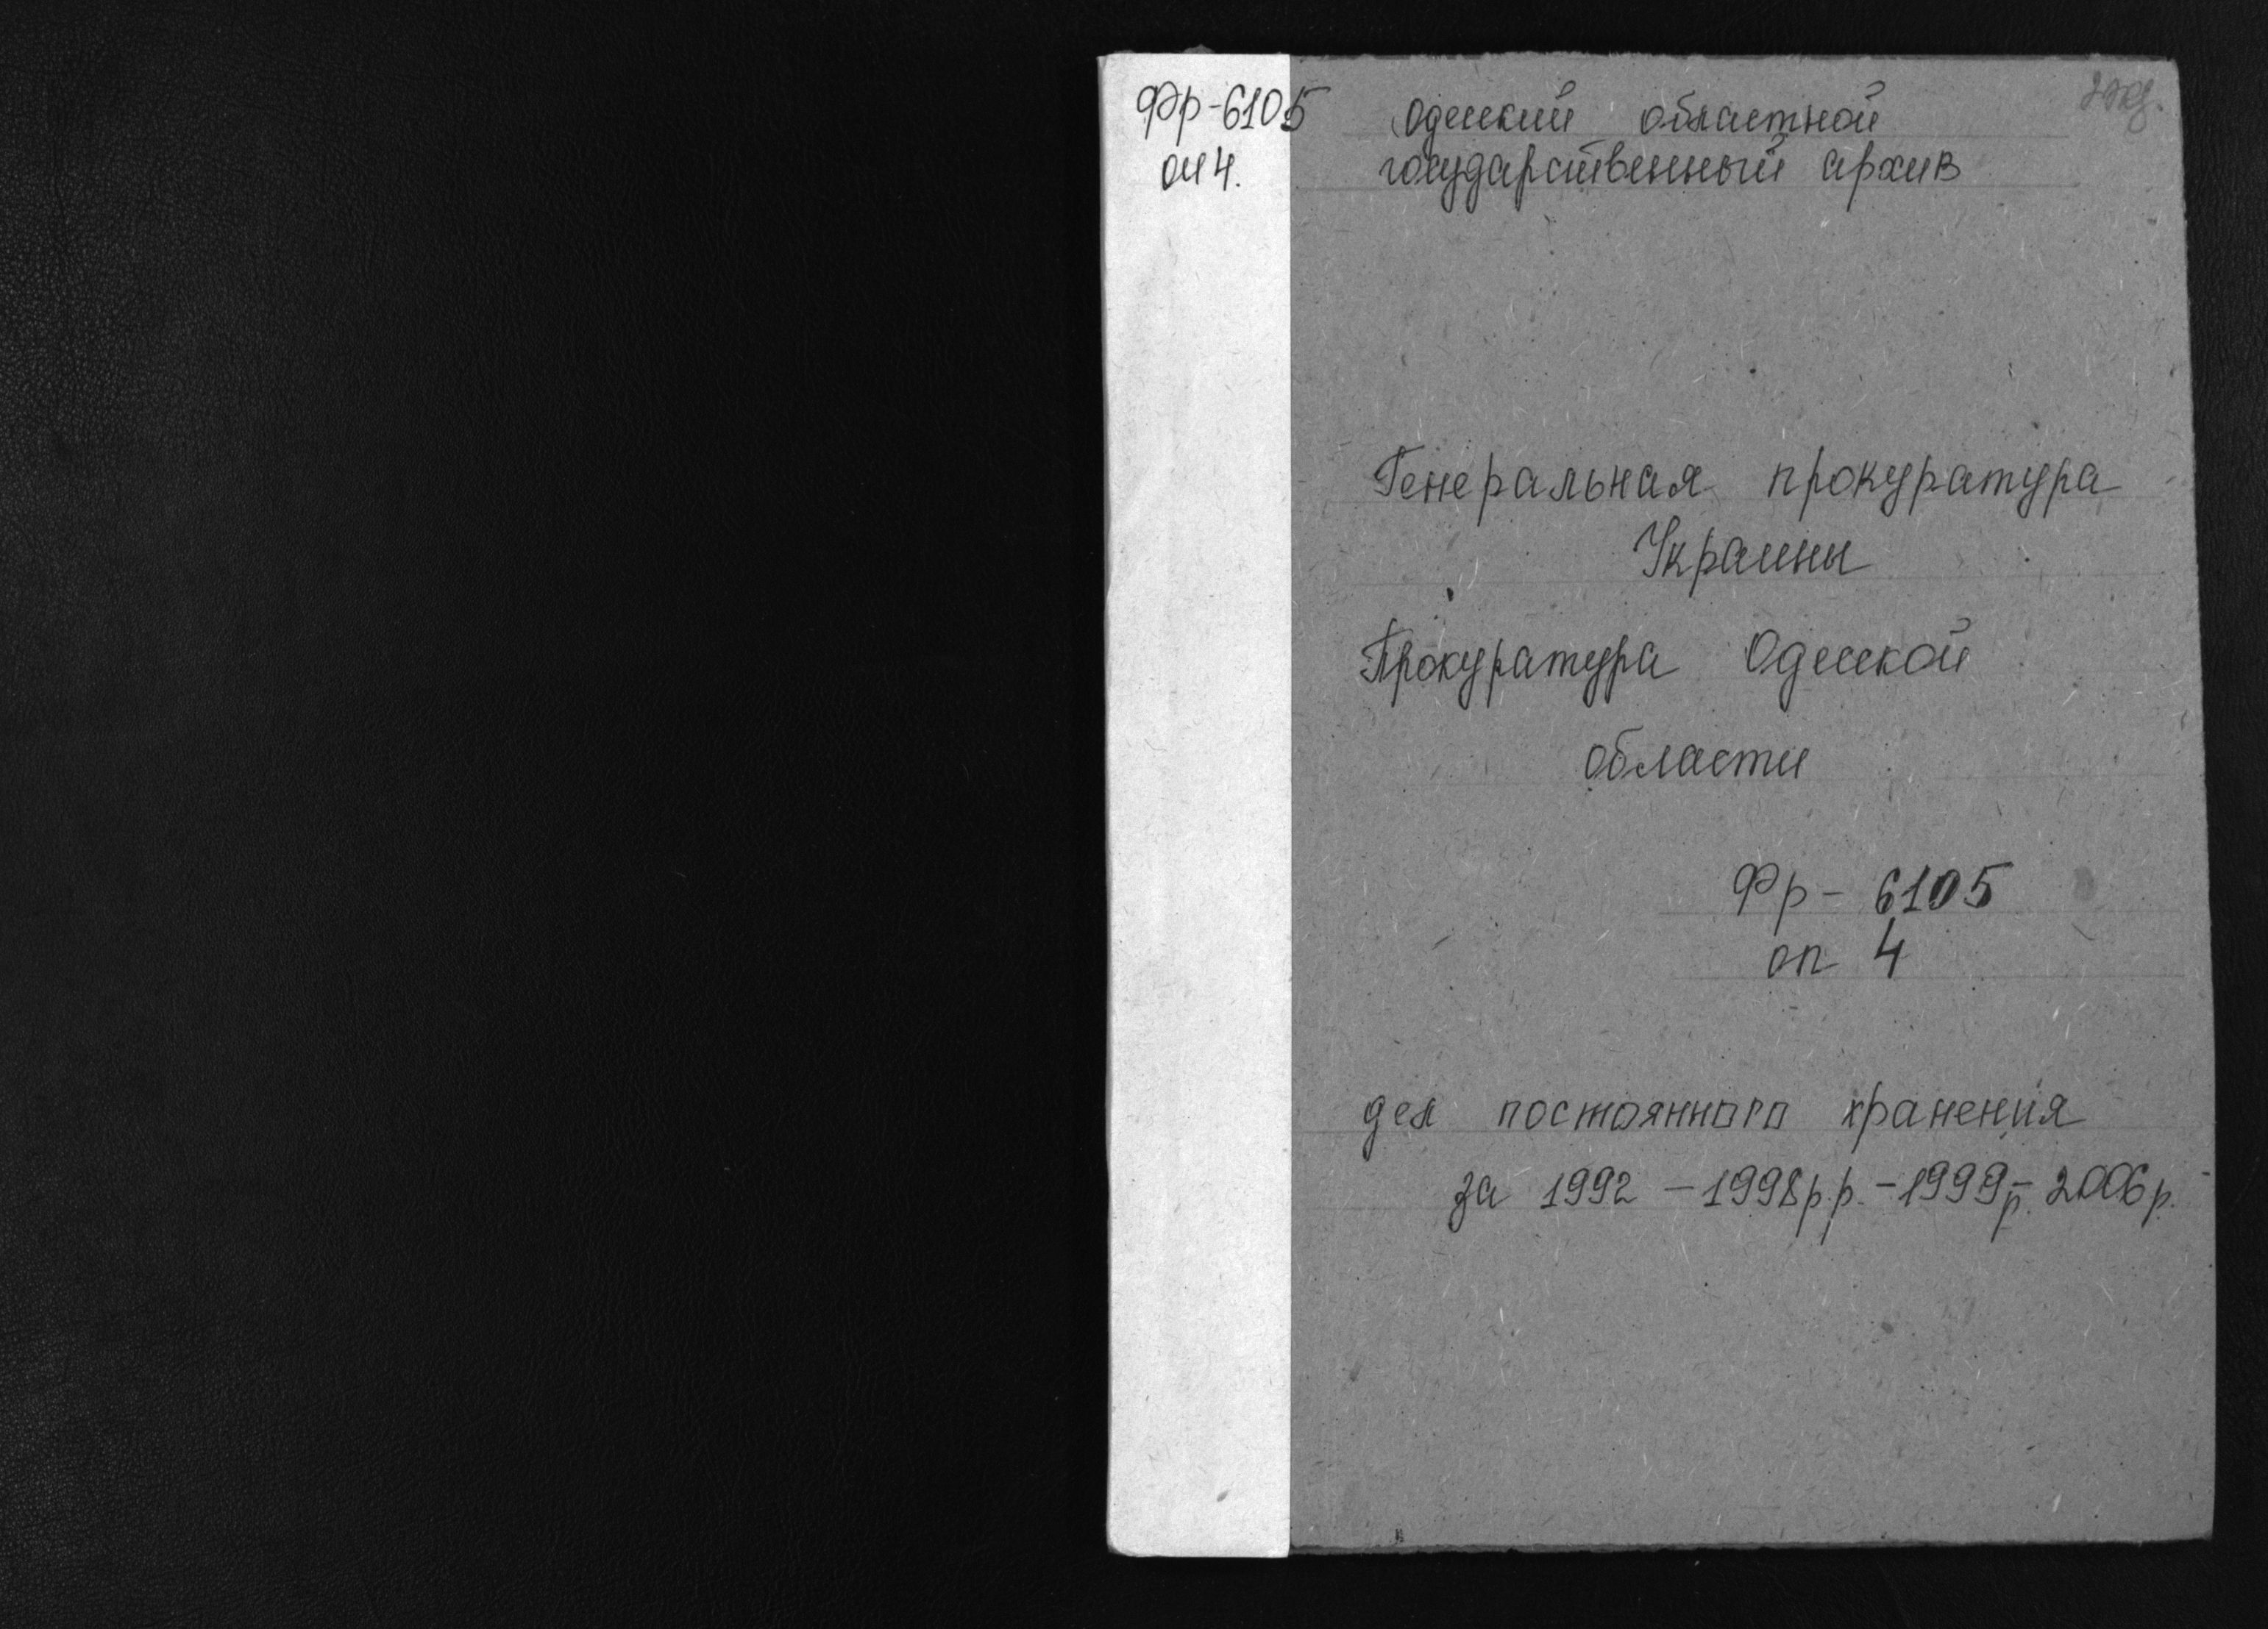 Фр-6105
оп 4.
Одесский областной
государственный архив
Генеральная прокуратура
Украины
Прокуратура Одесской
области
Фр- 6105
оп 4
дел постоянного хранения
за 1992 - 1998р.р. - 1999р.- 2006р.